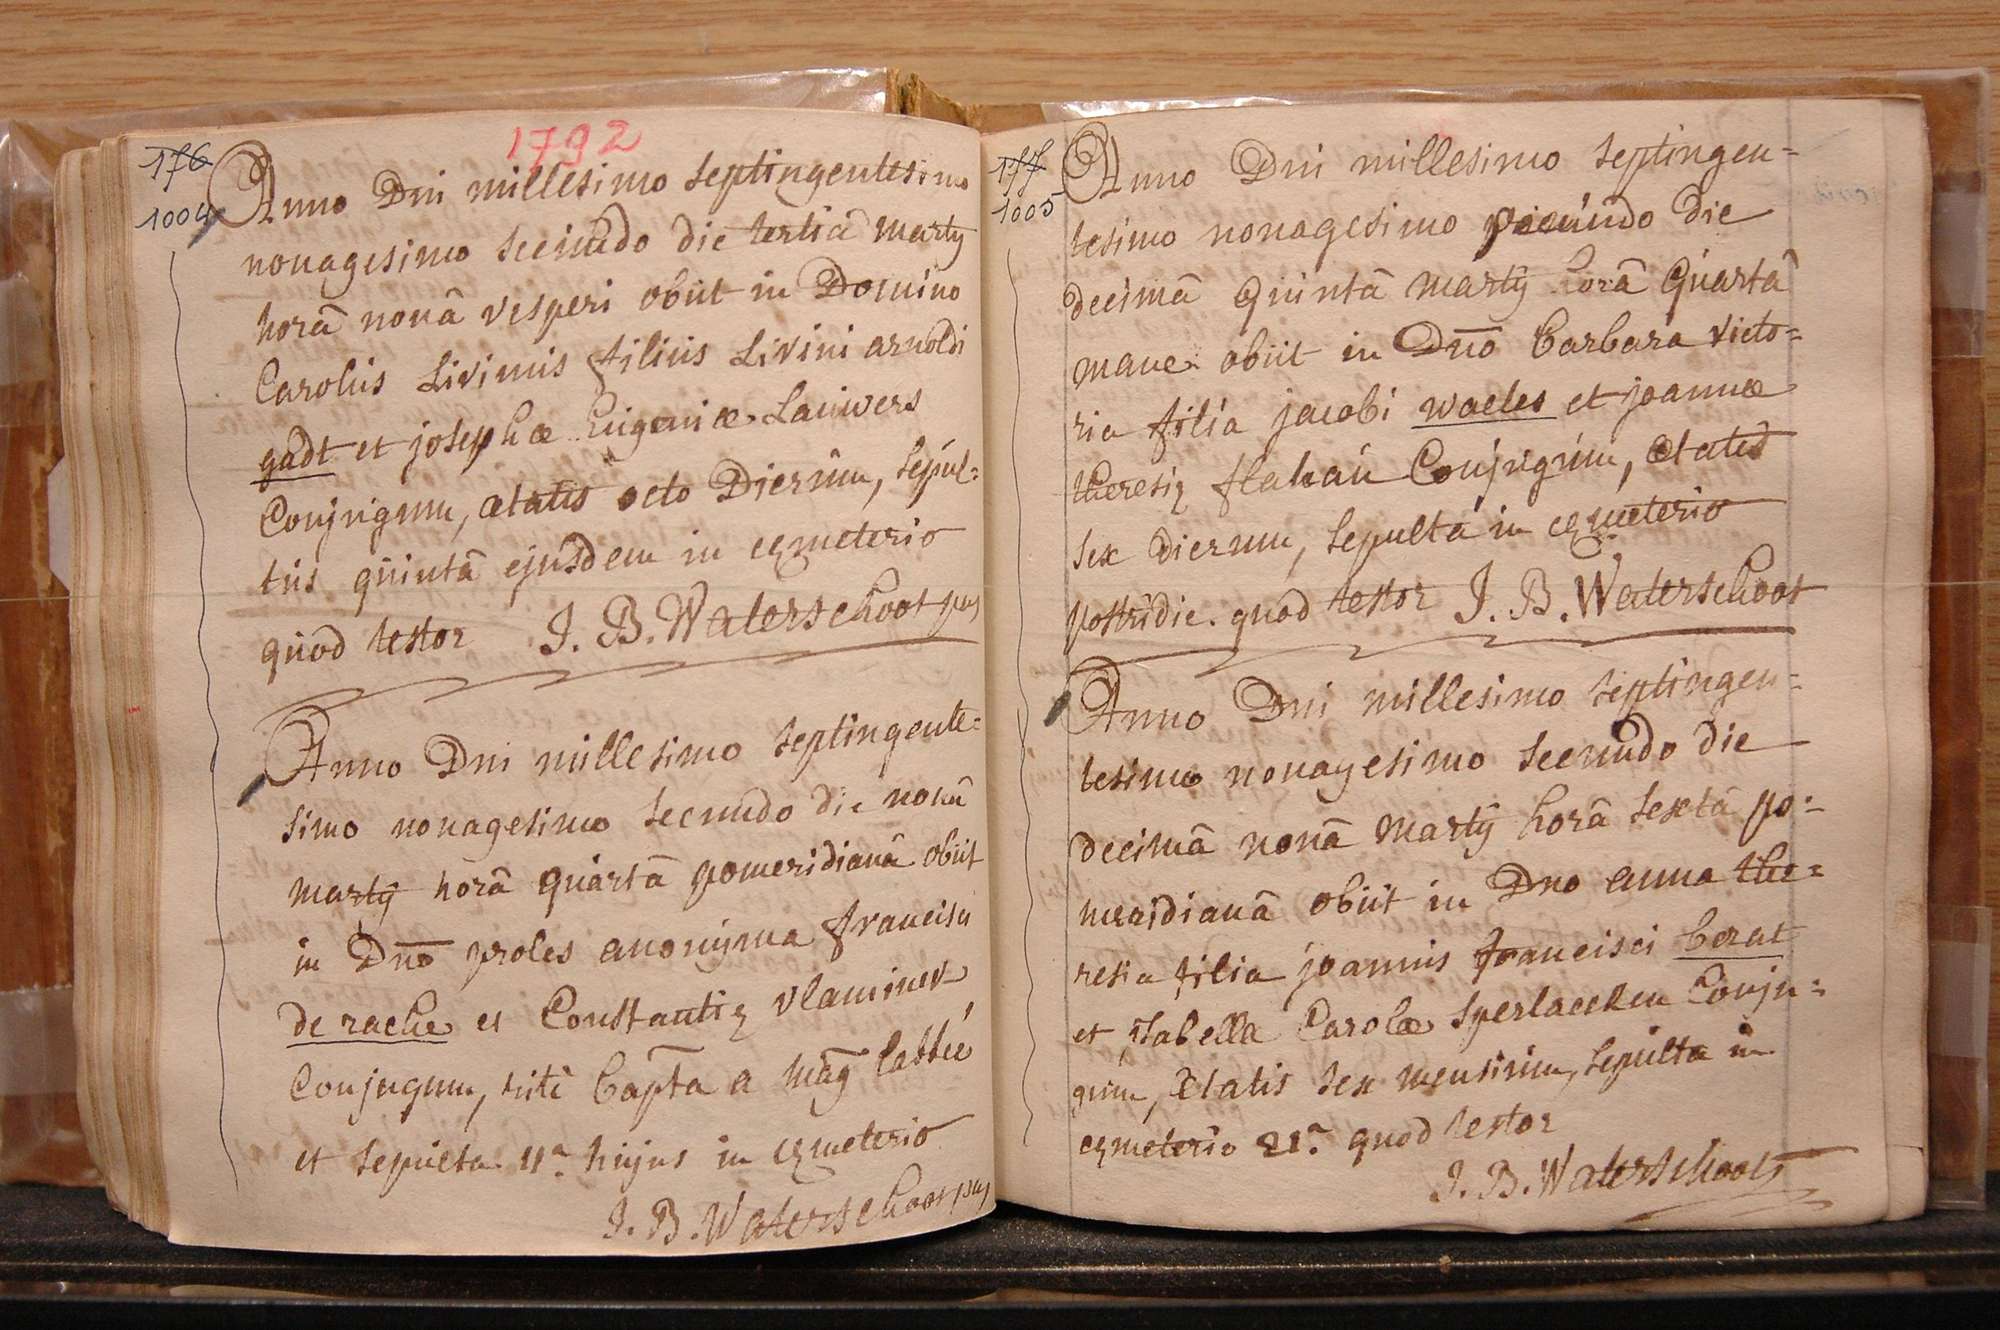 1792
176
1004
Anno Dni millesimo septingentesimo
nonagesimo secundo die tertiâ martÿ
horâ nonâ vesperi obiit in Domino
Carolus Livinus filius Livini arnoldi
gadt et josephæ Eugeniæ Lauwers
Conjugum, ætatis octo Dierum, sepul=
tus quintâ ejusdem in cęmeterio
quod testor J. B. Waterschoot pas
Anno Dni millesimo septingente=
simo nonagesimo secundo die nonâ
martÿ horâ quartâ pomeridianâ obiit
in Dno proles anonijma francisci
de rache et Constantię vlaminck
Conjugum, ritè bapta a
et sepulta 11a hujus in cęmeterio
J. B. Waterschoot pas
177
1005
Anno Dni millesimo septingen=
tesimo nonagesimo secundo die
decimâ quintâ martÿ horâ quartâ
mane obiit in Dno barbara victo=
ria filia jacobi waeles et joannæ
theresię flahau Conjugum, ætatis
sex dierum, sepulta in cęmeterio
postridie. quod testor J. B. Waterschoot
Anno Dni millesimo septingen=
tesimo nonagesimo secundo die
decimâ nonâ martÿ horâ sextâ po=
meridianâ obiit in Dno anna the=
resia filia joannis francisci berat
et Isabella Carolæ sperlaecken Conju=
gum, Ætatis sex mensium, sepulta in
cęmeterio 21a quod testor
J. B. Waterschoot